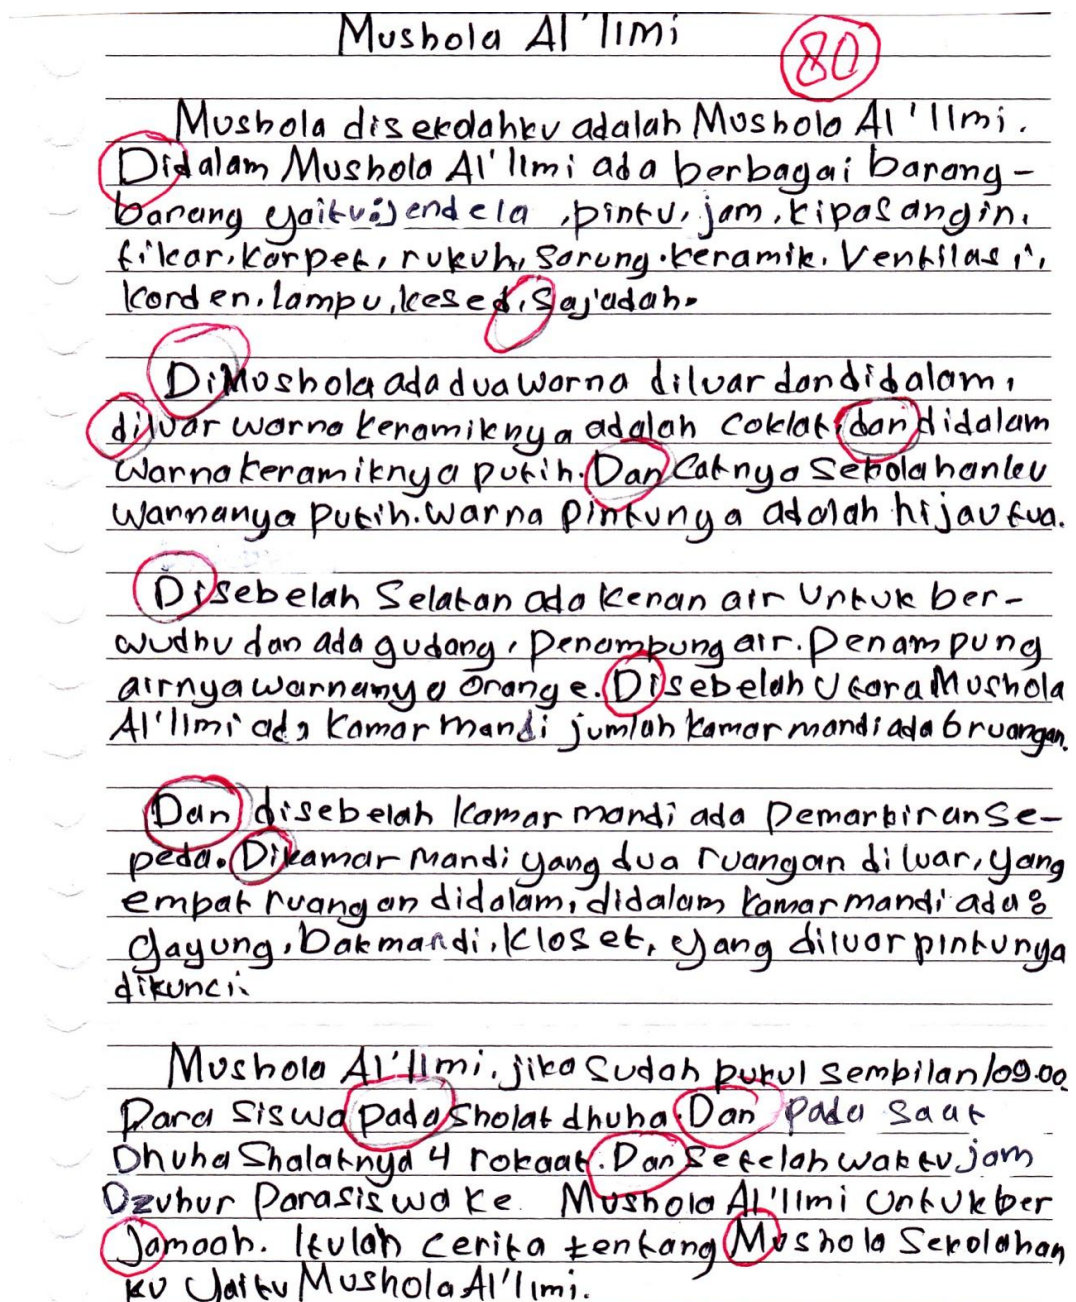 Mushola Al'Ilmi
80
Mushola disekolahku adalah Mushola Al'Ilmi.
Didalam Mushola Al'Ilmi ada berbagai barang-
barang yaitu: jendela, pintu, jam, kipas angin,
tikar, karpet, rukuh, sarung. keramik. Ventilasi,
korden, lampu, kesed, sajadah.
DiMushola ada dua warna diluar dan didalam,
diluar warna keramiknya adalah coklat dan didalam
warna keramiknya putih. Dan Catnya Sekolahanku
warnanya putih. warna pintunya adalah hijau tua.
Disebelah Selatan ada kenan air untuk ber-
wudhu dan ada gudang, penampung air. Penampung
airnya warnanya orange. Disebelah Utara Mushola
Al'Ilmi ada kamar mandi jumlah kamar mandi ada 6 ruangan.
Dan disebelah kamar mandi ada Pemarkiran Se-
peda. Dikamar mandi yang dua ruangan diluar, yang
empat ruangan didalam, didalam kamar mandi ada:
Gayung, bak mandi, kloset, yang diluar pintunya
dikunci.
Mushola Al'Ilmi, jika sudah pukul sembilan/09.00
Para Siswa pada Sholat dhuha. Dan pada saat
Dhuha Shalatnya 4 rokaat. Dan Setelah waktu jam
Dzuhur Para siswa ke Mushola Al'Ilmi Untuk ber
Jamaah. Itulah cerita tentang Mushola Sekolahan
ku Yaitu Mushola Al'Ilmi.